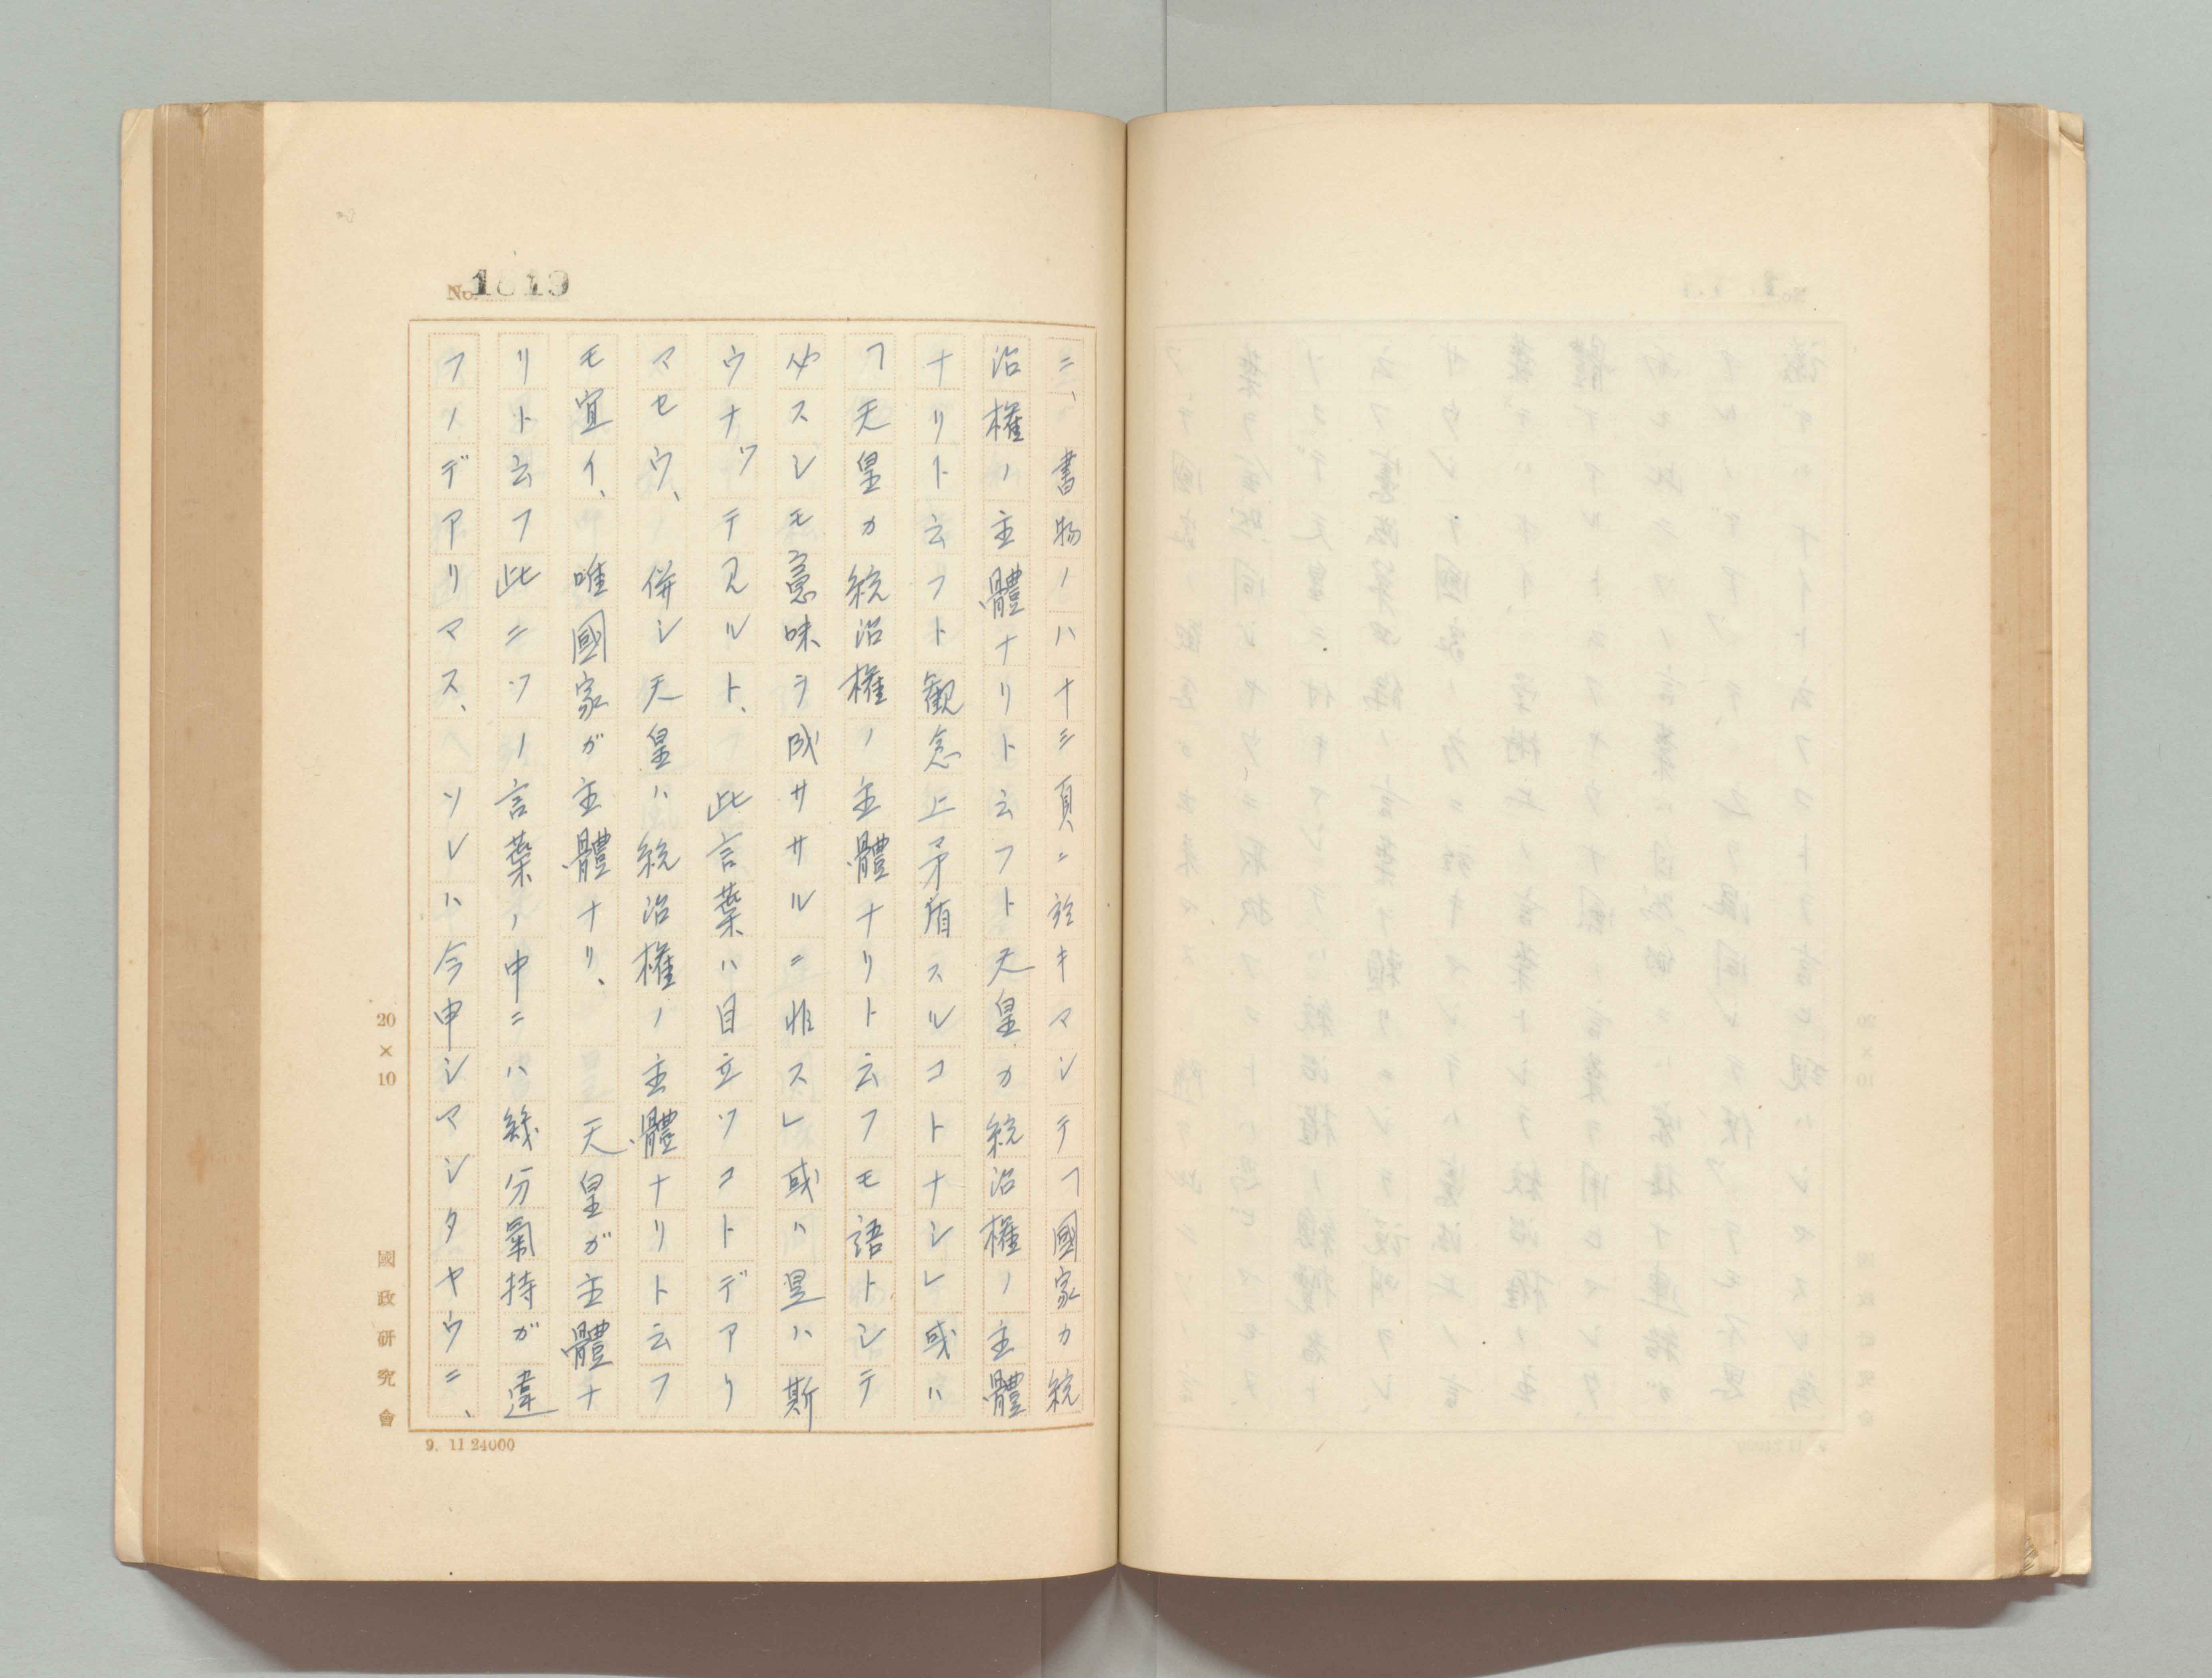 No. 1819
ニ、書物ノハ十三頁ニ於キマシテ「國家カ統
治權ノ主體ナリト云フト天皇カ統治權ノ主體
ナリト云フト観念上矛盾スルコトナシ」或ハ
「天皇カ統治權ノ主體ナリト云フモ語トシテ
必スシモ意味ヲ成ササルニ非ス」或ハ是ハ斯
ウナッテ見ルト、此言葉ハ目立ツコトデアリ
マセウ、併シ天皇ハ統治權ノ主體ナリト云フ
モ宜イ、唯國家が主體ナリ、天皇が主體ナ
リト云フ此ニツノ言葉ノ中ニハ幾分氣持が違
フノデアリマス、ソレハ今申シマシタヤウニ、
20×10
國政研究會
9. 11 24000